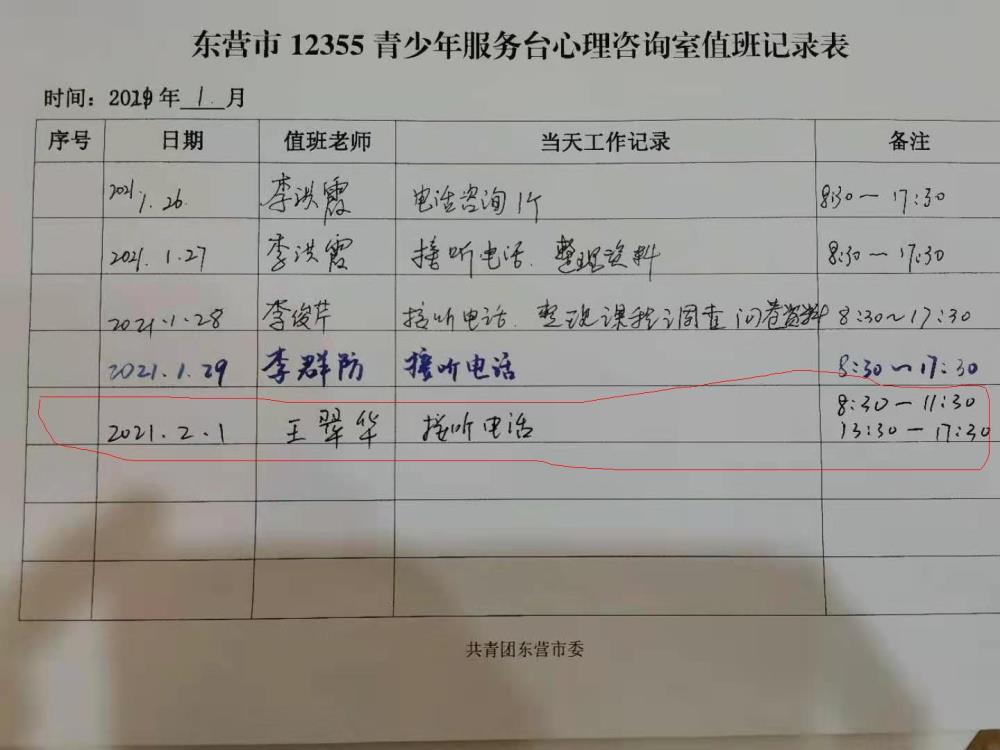 东营市 12355 青少年服务台心理咨询室值班记录表
时间：2021年 1 月
序号 日期 值班老师 当天工作记录 备注
2021.1.26 李洪霞 电话咨询1个 8:30—17:30
2021.1.27 李洪霞 接听电话、整理资料 8:30—17:30
2021.1.28 李俊芹 接听电话、整理课程调查问卷资料 8:30~17:30
2021.1.29 李群防 接听电话 8:30~17:30
8:30—11:30
2021.2.1 王翠华 接听电话 13:30—17:30
共青团东营市委